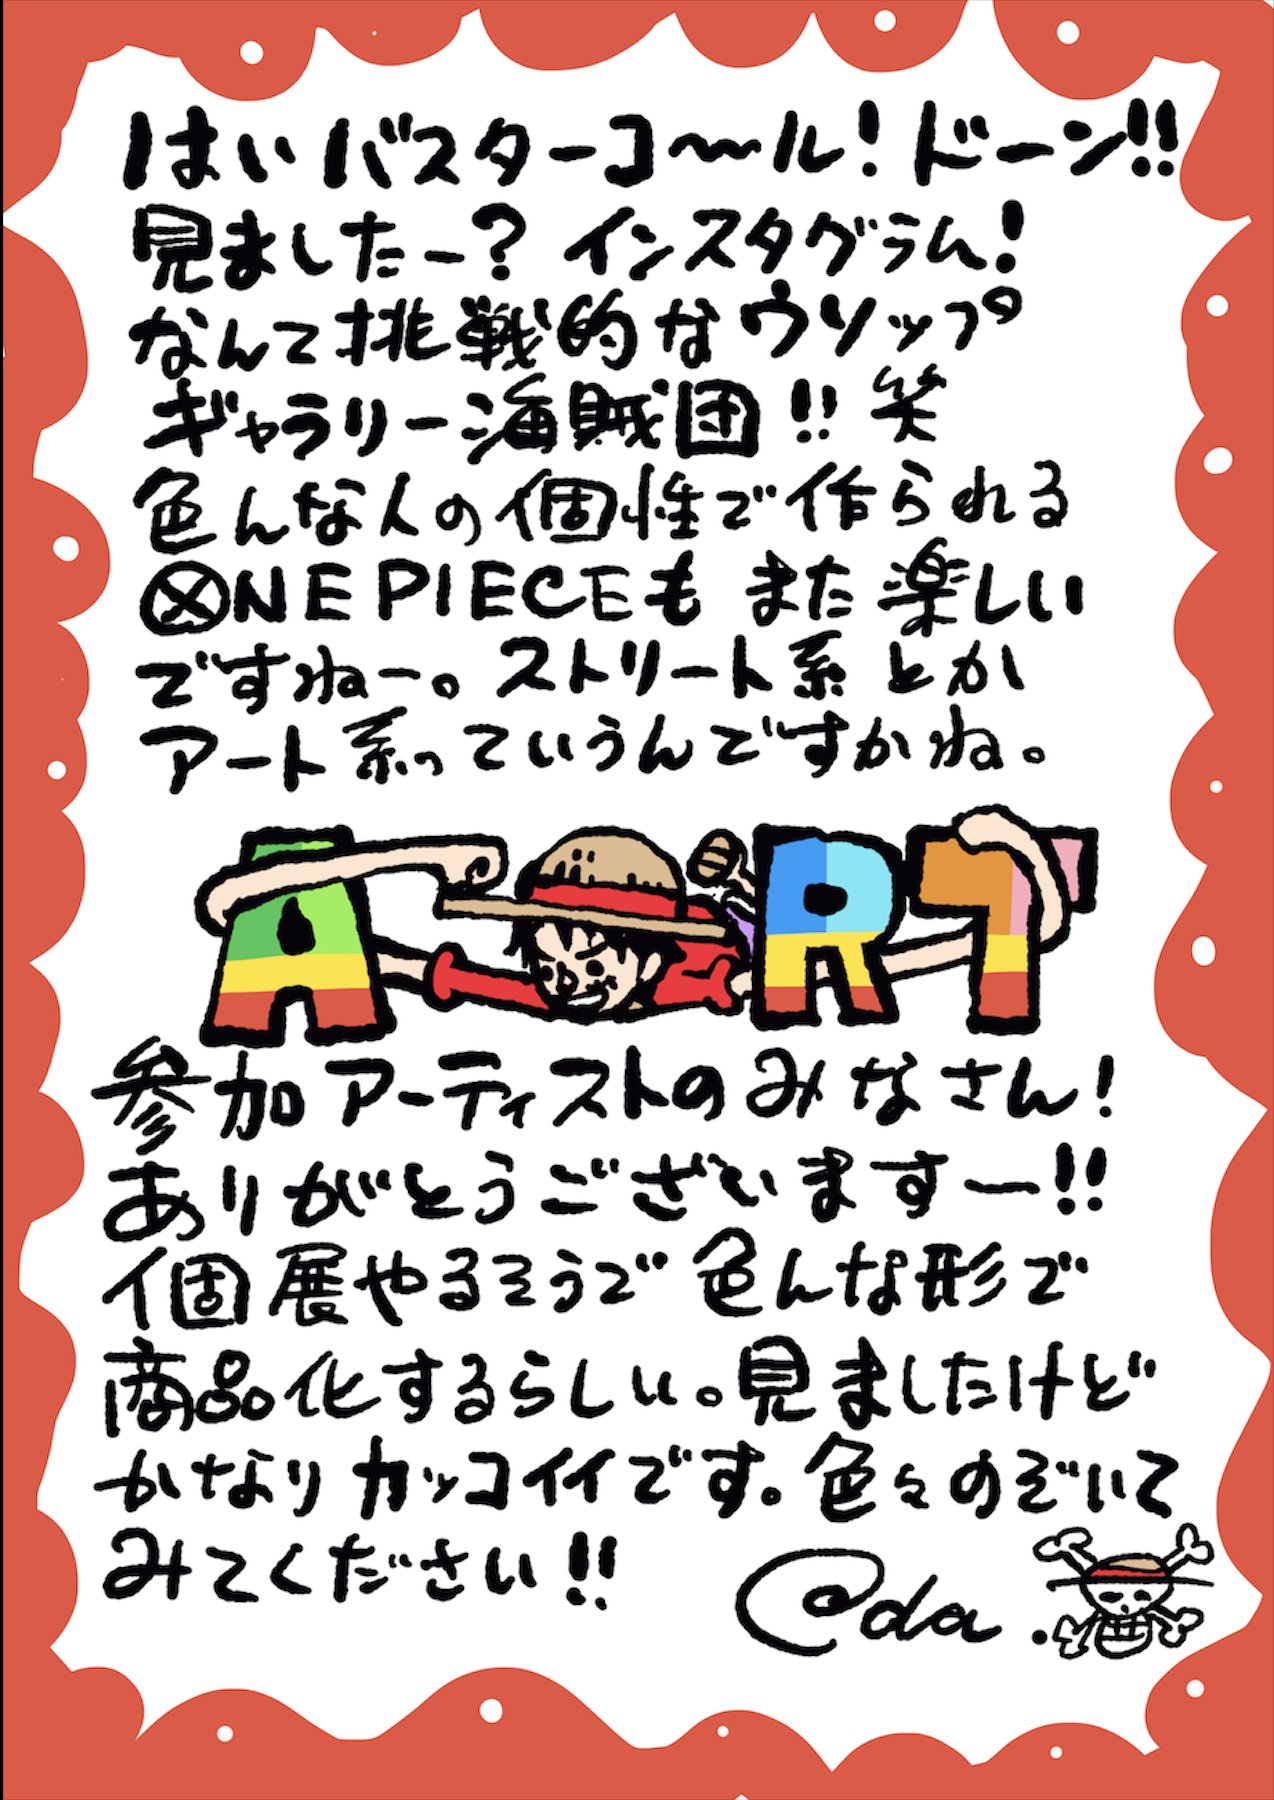 はいバスターコ〜〜ル!ドーン!!
見ましたー?インスタグラム!
なんて挑戦的なウソップ
ギャラリー海賊団!!笑
色んな人の個性で作られる
ONE PIECEもまた楽しい
ですねー。ストリート系とか
アート系っていうんですかね。
ART
参加アーティストのみなさん!
ありがとうございますー!!
個展やるそうで色んな形で
商品化するらしい。見ましたけど
かなりカッコイイです。色々のぞいて
みてください!!
Oda.